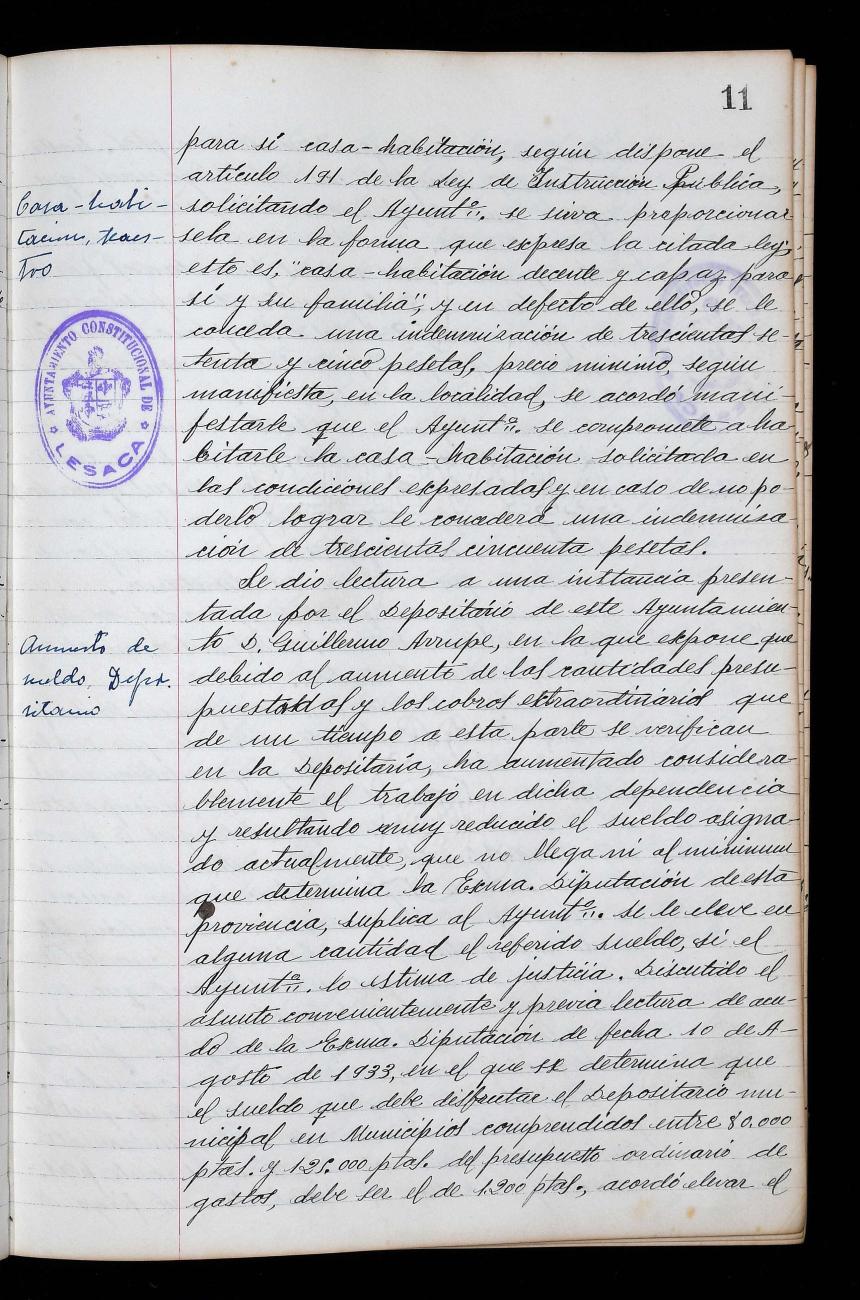 11
para sí casa-habitación, según dispone el
artículo 191 de la Ley de Instrucción Pública,
solicitando el Ayuntº. se sirva proporcionar
sela en la forma que expresa la citada ley,
esto es, "casa-habitación decente y capaz para
sí y su familia", y en defecto de ello, se le
conceda una indemnización de trescientas se-
tenta y cinco pesetas, precio mínimo, según
manifiesta, en la localidad, se acordó mani-
festarle que el Ayuntº. se compromete a ha
bitarle la casa-habitación solicitada en
las condiciones expresadas y en caso de no po-
derlo lograr le concederá una indemniza-
ción de trescientas cincuenta pesetas.
Se dio lectura a una instancia presen-
tada por el Depositario de este Ayuntamien-
to D. Guillermo Arrupe, en la que expone que
debido al aumento de las cantidades presu-
puestadas y los cobros extraordinarios que
de un tiempo a esta parte se verifican
en la Depositaría, ha aumentado considera-
blemente el trabajo en dicha dependencia
y resultando muy reducido el sueldo asigna-
do actualmente, que no llega ni al minimum
que determina la Excma. Diputación de esta
provincia, suplica al Ayuntº. se le eleve en
alguna cantidad el referido sueldo, si el
Ayuntº. lo estima de justicia. Discutido el
asunto convenientemente y previa lectura de acu-
do de la Excma. Diputación de fecha 10 de A-
gosto de 1933, en el que se determina que
el sueldo que debe disfrutar el Depositario mu-
nicipal en Municipios comprendidos entre 80.000
ptas. y 125.000 ptas. del presupuesto ordinario de
gastos, debe ser el de 1.200 ptas., acordó elevar el
Casa-habi-
tacion, Maes-
tro
AYUNTAMIENTO CONSTITUCIONAL DE
LESACA
Aumento de
sueldo, Depo-
sitario